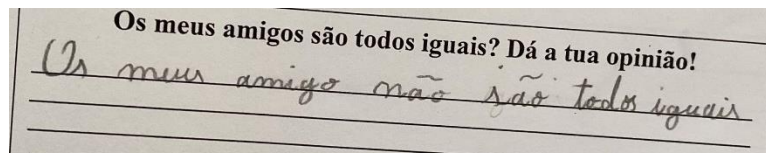 Os meus amigos são todos iguais? Dá a tua opinião!
Os meus amigo não são todos iguais